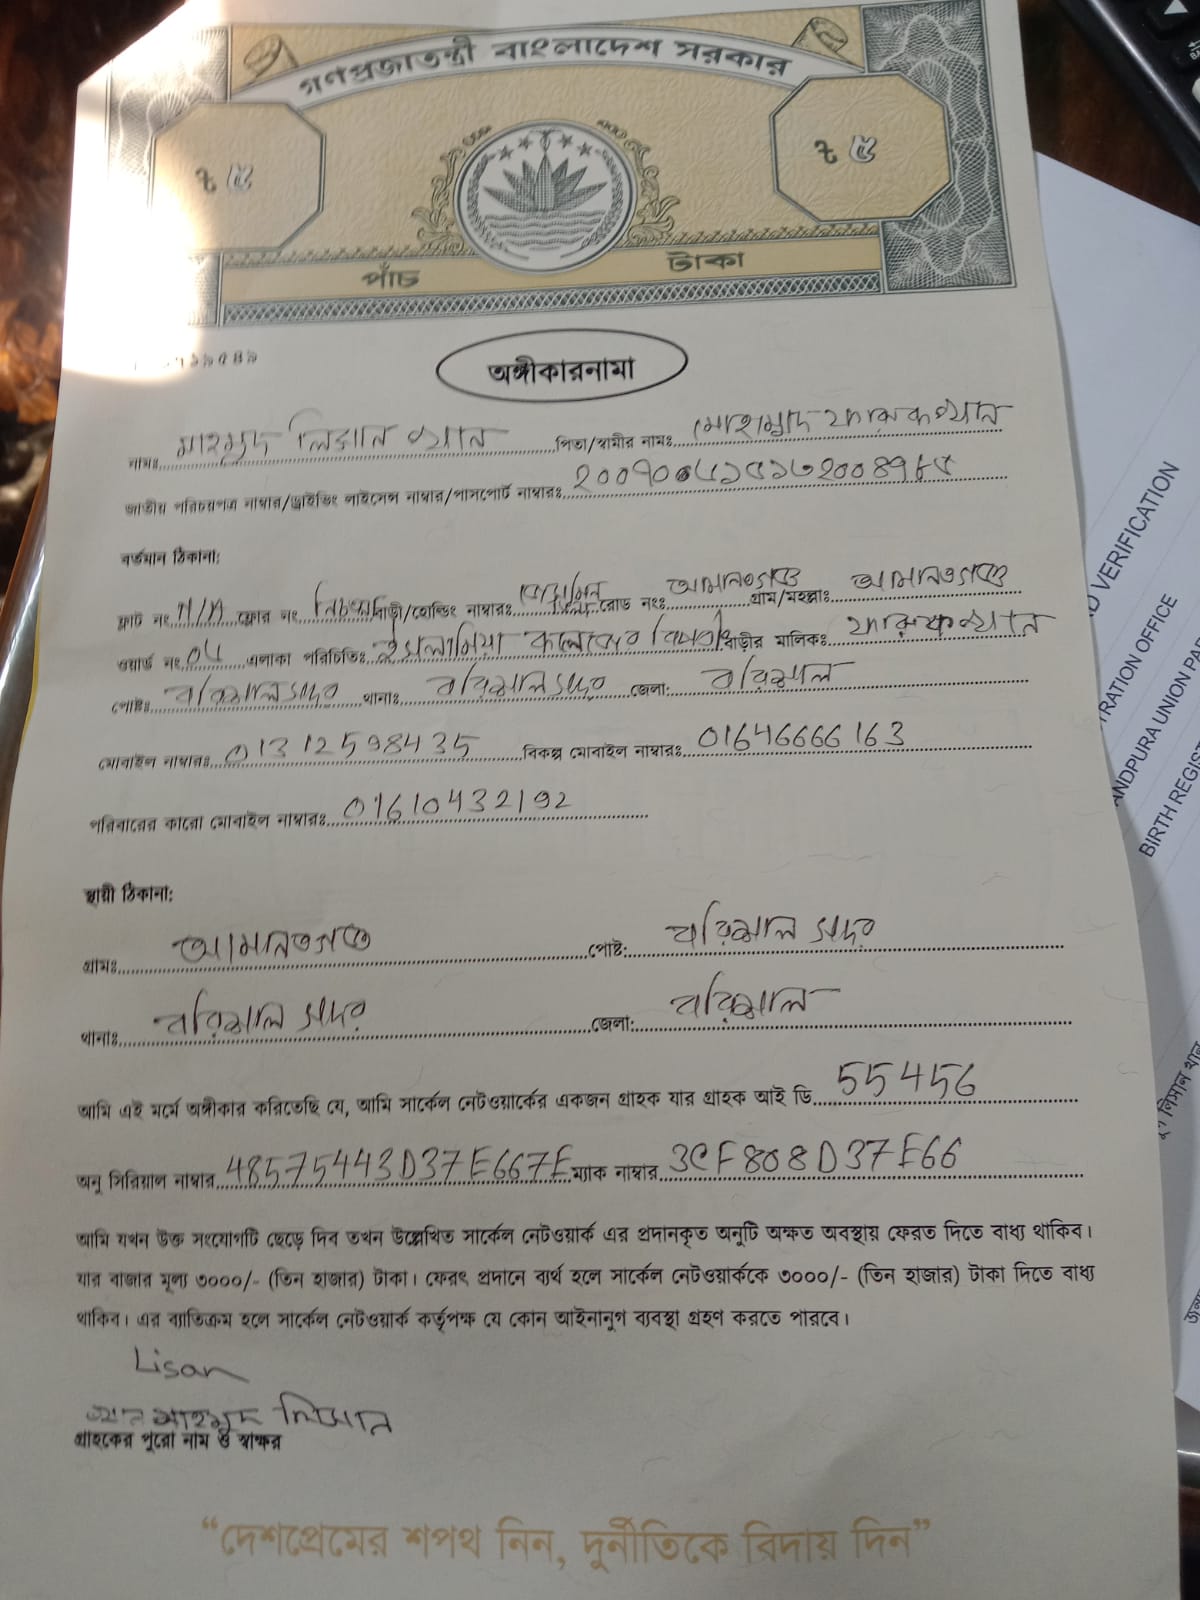 গণপ্রজাতন্ত্রী বাংলাদেশ সরকার
৳ ৫
৳ ৫
পাঁচ টাকা
অঙ্গীকারনামা
নামঃ মাহমুদ লিসান খান পিতা/স্বামীর নামঃ মোহাম্মদ ফারুক খান
জাতীয় পরিচয়পত্র নাম্বার/ড্রাইভিং লাইসেন্স নাম্বার/পাসপোর্ট নাম্বারঃ
বর্তমান ঠিকানা:
ফ্লাট নং N/A ফ্লোর নং নিচতলা বাড়ী/হোল্ডিং নাম্বারঃ রোড নংঃ আমানতগঞ্জ গ্রাম/মহল্লাঃ আমানতগঞ্জ
ওয়ার্ড নং এলাকা পরিচিতিঃ ইসলামিয়া কলেজের বিপরীতে বাড়ীর মালিকঃ ফারুক খান
পোষ্টঃ বরিশাল সদর থানাঃ বরিশাল সদর জেলা: বরিশাল
মোবাইল নাম্বারঃ 01312598435 বিকল্প মোবাইল নাম্বারঃ 01646666163
পরিবারের কারো মোবাইল নাম্বারঃ 01610432192
স্থায়ী ঠিকানা:
গ্রামঃ আমানতগঞ্জ পোষ্ট: বরিশাল সদর
থানাঃ বরিশাল সদর জেলা: বরিশাল
আমি এই মর্মে অঙ্গীকার করিতেছি যে, আমি সার্কেল নেটওয়ার্কের একজন গ্রাহক যার গ্রাহক আই ডি 55456
অনু সিরিয়াল নাম্বার 48575443D37E667E ম্যাক নাম্বার 3CF808D37E66
আমি যখন উক্ত সংযোগটি ছেড়ে দিব তখন উল্লেখিত সার্কেল নেটওয়ার্ক এর প্রদানকৃত অনুটি অক্ষত অবস্থায় ফেরত দিতে বাধ্য থাকিব।
যার বাজার মূল্য ৩০০০/- (তিন হাজার) টাকা। ফেরৎ প্রদানে ব্যর্থ হলে সার্কেল নেটওয়ার্ককে ৩০০০/- (তিন হাজার) টাকা দিতে বাধ্য
থাকিব। এর ব্যতিক্রম হলে সার্কেল নেটওয়ার্ক কর্তৃপক্ষ যে কোন আইনানুগ ব্যবস্থা গ্রহণ করতে পারবে।
Lisan
খান মাহমুদ লিসান
গ্রাহকের পুরো নাম ও স্বাক্ষর
“দেশপ্রেমের শপথ নিন, দুর্নীতিকে বিদায় দিন”
VERIFICATION
OFFICE
UNION
BIRTH
লিসান